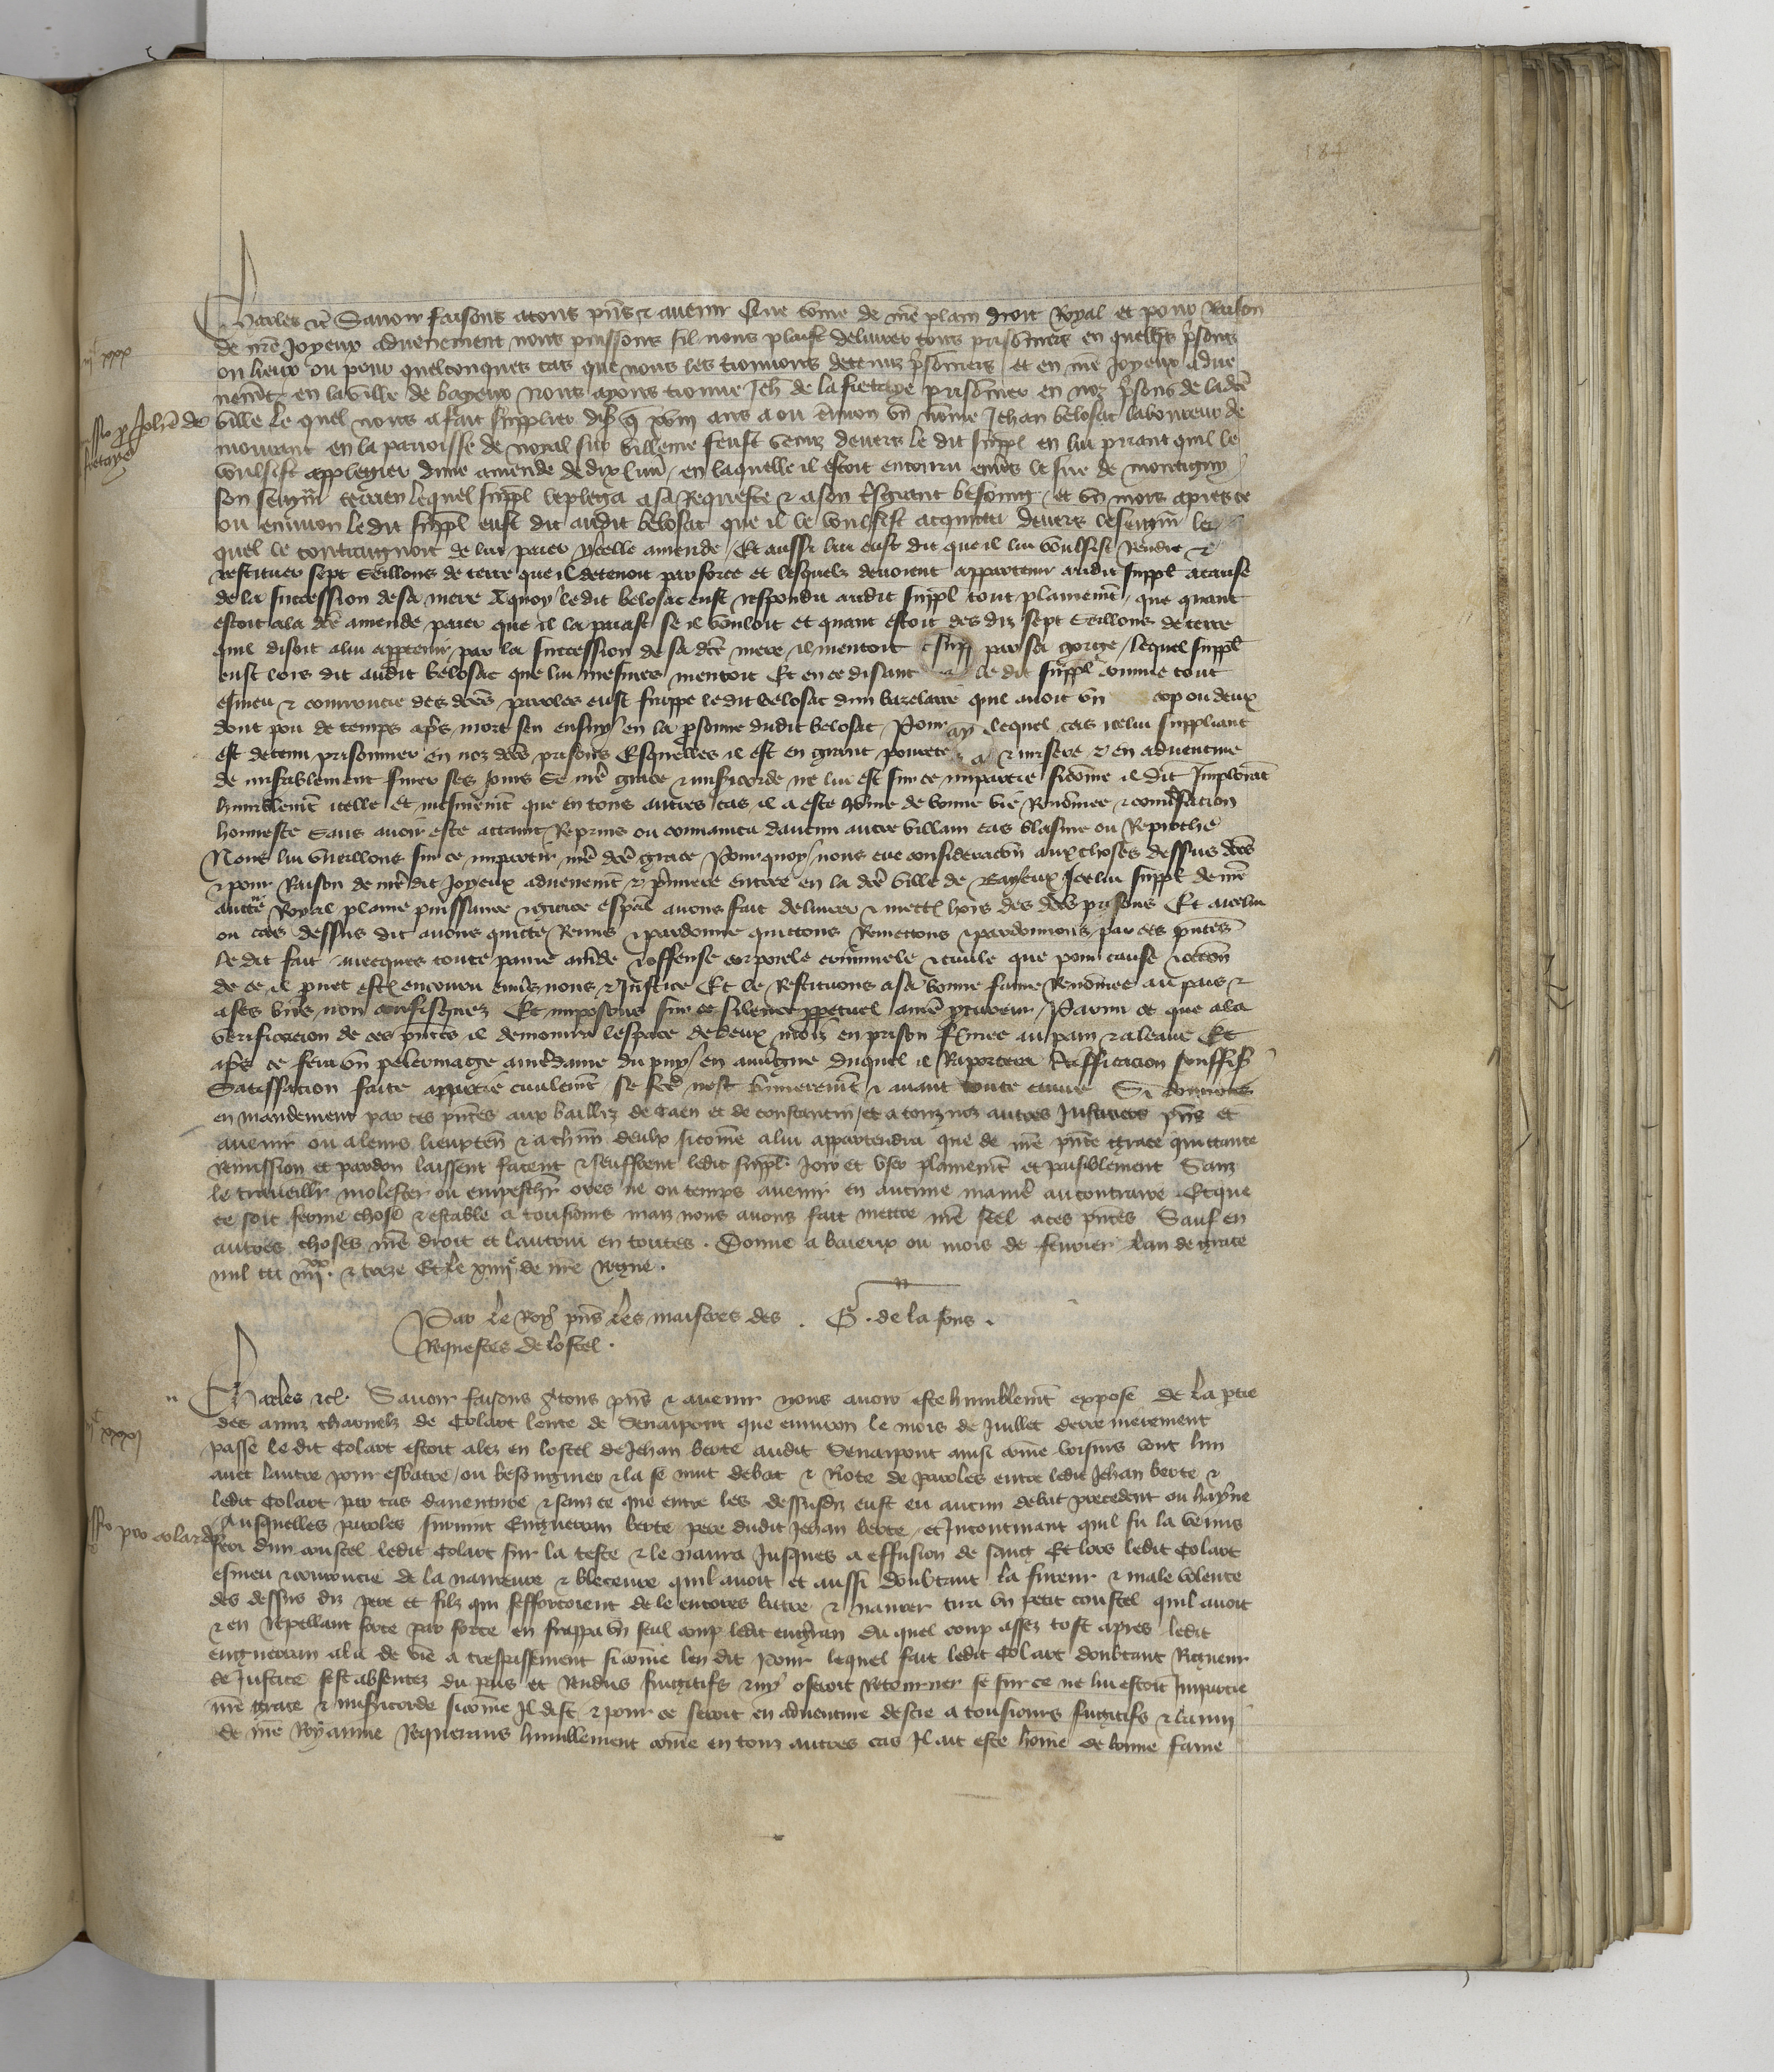 184
Charles etc Savoir faisons atous pns et avenir Que come de nre plain droit Royal et pour Raison
de nre Joyeux advenement nous puissons sil nous plaist delivrer tous prisonniers en quelxques prisons
ou lieux ou pour quelconques cas que nous les trouvons detenuz prisonniers / et en nre Joyeux adve
nemt en la ville de bayeux Nous ayons trouve Jeh de la fretaye prisonnier en noz prisons de lade
ville le quel nous a fait supplier dis q xviij ans a ou environ un nome Jehan belosac laboureur de
mourant en la parroisse de noral sur villerie feust venuz devers le dit suppl en lui priant quil le
voulsist applegier dune amende de dix livr / en laquelle il estoit encouru envs le sire de montigny
son seigr terrien lequel suppl leplega a sa Requeste et ason tsgrant besoing / et un mois apres ce
ou environ ledit suppl eust dit audit belosac que il le voulsist acquitter devers leseigr le
quel le contraignoit de lui paier ycelle amende / Et aussi lui eust dit que il lui voulsist Rendre et
restituer sept seillons de terre que il detenoit par force et lesquelx devoient appartenir audit suppl acause
de la succession desa mere Aquoy / ledit belosac eust respondu audit suppl tout plainemt / que quant
estoit ala de amende paier que il la paiast se il vouloit et quant estoit des diz sept seillons de terre
quil disoit alui appartenir par la succession de sa dte mere / il mentoit par sa gorge / lequel suppl
eust lors dit audit belosac que lui mesmes mentoit Et en ce disant le dit suppl comme tout
esmeu et courroucie des des paroles eust frappe ledit belosac dun bazelaire quil avoit un cop ou deux
dont pou de temps aps mort sen ensuy en la psonne dudit belosac / Pour lequel cas icelui suppliant
est detenu prisonnier en noz des prisons Esquelles il est en grant povrete et misere et en adventure
de misrablement finer ses jours Se nre grace et misericorde ne lui est sur ce impartie sicome il dit Implorant
humblemt icelle et mesmemt que en tous autres cas il a este home de bonne vie Renomee et conversacion
honneste Sans avoir este attaint Reprins ou convaincu daucun autre villain cas blasme ou Reprouche
Nous lui vueillons sur ce impartir nre de grace / Pour quoy / nous eue consideracion aux choses dessus des
et pour Raison de nre dit Joyeux advenemt et pmiere entree en la de ville de Bayeux / Icelui suppl de nre
aucte Royal plaine puissance et grace especl avons fait delivrer et mettre hors des des prisons Et acelui
ou cas dessus dit avons quicte Remis et pardonne quictons Remettons et pardonnons par ces pntes
le dit fait avecques toute paine amde et offense corporele criminele et civile que pour cause et occon
de ce il puet estre encouru envs nous et Justice Et le Restituons a sa bonne fame Renomee au pais et
a ses biens non confisquez Et imposons sur ce silence ppetuel anre procureur / Parmi ce que ala
verificacion de ces pntes il demourra lespace de deux mois en prison fermee au pain et aleaue Et
aps ce fera un pelerinage a nre dame du puy / en auvrgne duquel il Raportera certifficacion souffist
Satisfacion faite apartie civilemt se fte nest premieremt et avant toute euvre Si donnons
en mandement par ces pntes aux bailliz de Caen et de constantin / et a touz noz autres Justiciers pns et
avenir ou aleurs lieuxten et achun deulx sicome alui appartendra que de nre pnte grace quittance
remission et pardon laissent facent et seuffrent ledit suppl Joir et user plainemt et paisiblement Sanz
le travaillr molester ou empeschr ores ne ou temps avenir en aucune maniere au contraire Et que
ce soit ferme chose et estable a tousiours mais nous avons fait mettre nre seel aces pntes Sauf en
autres choses nre droit et lautrui en toutes . Donne a baieux ou mois de fevrier lan de grace
mil ccc iiijxx. et treze Et le xiiije de nre regne .
Par le Roy pns les maistres des . G . de la fons .
Requestes de lostel .
Charles etc. Savoir faisons atous pns et avenir nous avoir este humblemt expose de la ptie
des amis charnelz de Colart lente de Senarpont que environ le mois de Juillet derre nierement
passe le dit Colart estoit alez en lostel de Jehan berte audit Senarpont ainsi come voisins vont lun
avec lautre pour esbatre / ou besoingnier et la se mut debat et Riote de paroles entre ledit Jehan berte et
ledit Colart par cas daventure et sanz ce que entre les dessusdiz eust eu aucun debat precedent ou hayne
Ausquelles paroles survint Enguerran berte pere dudit Jehan berte / et Incontinant quil fu la venus
feri dun coustel ledit Colart sur la teste et le navra Jusques a effusion de sang Et lors ledit Colart
esmeu et courroucie de la navreure et bleceure quil avoit et aussi doubtant la fureur et male volente
des dessus diz pere et filz qui sefforcoient de le encores batre et navrer tira un petit coustel quil avoit
et en repellant force par force en frappa un seul coup ledit enguerran du quel coup assez tost apres ledit
enguerran ala de vie a trespassement sicome len dit Pour lequel fait ledit Colart doubtant Rigueur
de Justice sest absentez du pais et Rendus fuigitifs et ny oseroit Retourner se sur ce ne lui estoit Impartie
nre grace et misericorde sicome Il dist et pour ce seroit en adventure destre a tousiours fugitifs et banny
de nre Royaume Requerans humblement come en touz autres cas Il ait este home de bonne fame